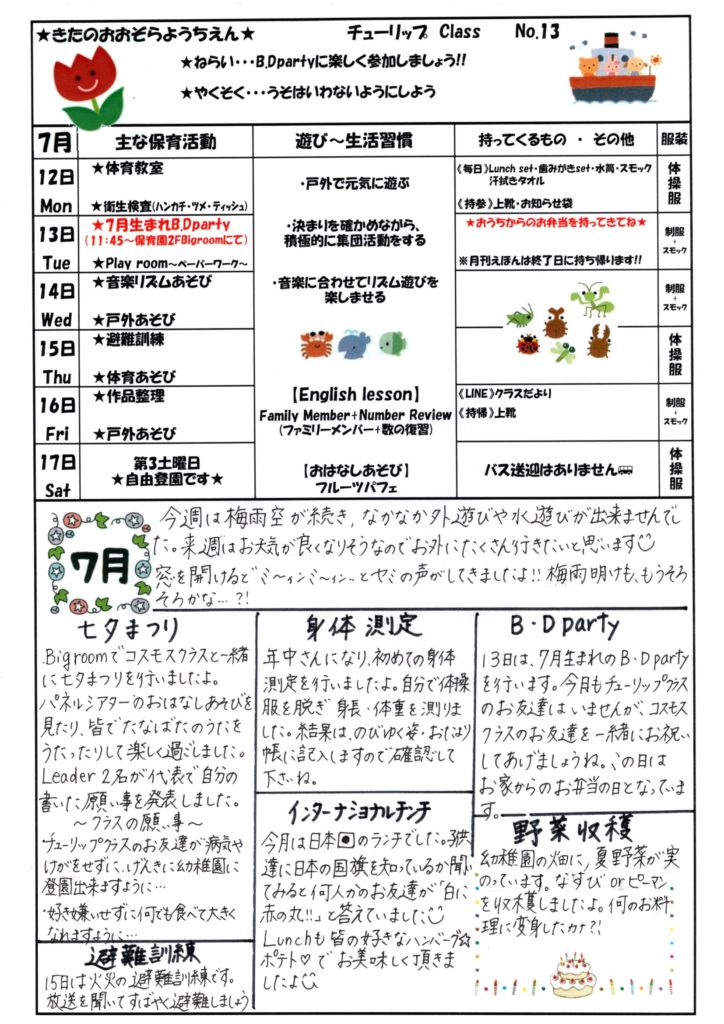 ★きたのおおぞらようちえん★
チューリップ Class No.13
★ねらい・・・B.Dpartyに楽しく参加しましょう!!
★やくそく・・・うそはいわないようにしよう
7月 主な保育活動 遊び～生活習慣 持ってくるもの ・ その他 服装
12日 Mon
★体育教室
★衛生検査(ハンカチ・ツメ・ティッシュ)
《毎日》Lunch set・歯みがきset・水筒・スモック
汗拭きタオル
《持参》上靴・お知らせ袋
体操服
13日 Tue
★7月生まれB.Dparty
(11:45～保育園2FBigroomにて)
★Play room～ペーパーワーク～
★おうちからのお弁当を持ってきてね★
※月刊えほんは終了日に持ち帰ります!!
制服+スモック
14日 Wed
★音楽リズムあそび
★戸外あそび
制服+スモック
15日 Thu
★避難訓練
★体育あそび
体操服
16日 Fri
★作品整理
★戸外あそび
《LINE》クラスだより
《持帰》上靴
制服+スモック
17日 Sat
第3土曜日
★自由登園です★
バス送迎はありません
体操服
・戸外で元気に遊ぶ
・決まりを確かめながら、
積極的に集団活動をする
・音楽に合わせてリズム遊びを
楽しませる
【English lesson】
Family Member+Number Review
(ファミリーメンバー+数の復習)
【おはなしあそび】
フルーツパフェ
7月
今週は梅雨空が続き、なかなか外遊びや水遊びが出来ませんでし
た。来週はお天気が良くなりそうなのでお外にたくさん行きたいと思います
窓を開けると"ミ～ィンミ～ィン"とセミの声がしてきましたよ!!梅雨明けも、もうそろ
そろかな…?!
七夕まつり
Bigroomでコスモスクラスと一緒
に七夕まつりを行いましたよ。
パネルシアターのおはなしあそびを
見たり、皆でたなばたのうたを
うたったりして楽しく過ごしました。
Leader2名が代表で自分の
書いた願い事を発表しました。
～クラスの願い事～
・チューリップクラスのお友達が病気や
けがをせずに、げんきに幼稚園に
登園出来ますように…
・好き嫌いせずに何でも食べて大きく
なれますように…
避難訓練
15日は火災の避難訓練です。
放送を聞いてすばやく避難しましょう
身体測定
年中さんになり、初めての身体
測定を行いましたよ。自分で体操
服を脱ぎ身長・体重を測りま
した。結果は、のびゆく姿・おたより
帳に記入しますので確認して
下さいね。
インターナショナルランチ
今月は日本のランチでした。子供
達に日本の国旗を知っているか聞い
てみると何人かのお友達が「白に
赤の丸!!」と答えていました
Lunchも皆の好きなハンバーグ☆
ポテト♡でお美味しく頂きま
したよ
B・Dparty
13日は、7月生まれのB・Dparty
を行います。今月もチューリップクラス
のお友達はいませんが、コスモス
クラスのお友達を一緒にお祝い
してあげましょうね。この日は
お家からのお弁当の日となっていま
す。
野菜収穫
幼稚園の畑に、夏野菜が実
のっています。なすび orピーマン
を収穫しましたよ。何のお料
理に変身したカナ?!